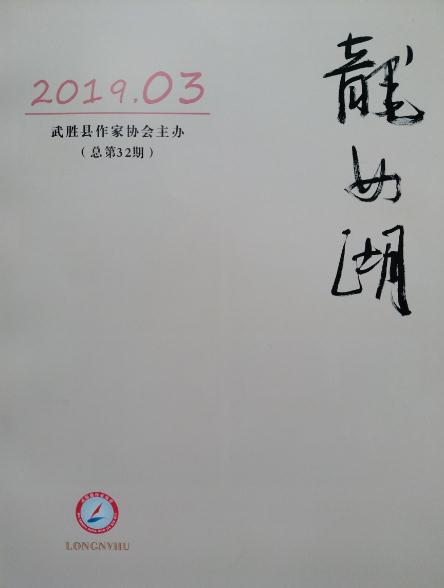 2019.03
武胜县作家协会主办
（总第32期）
龍女湖
LONGNVHU